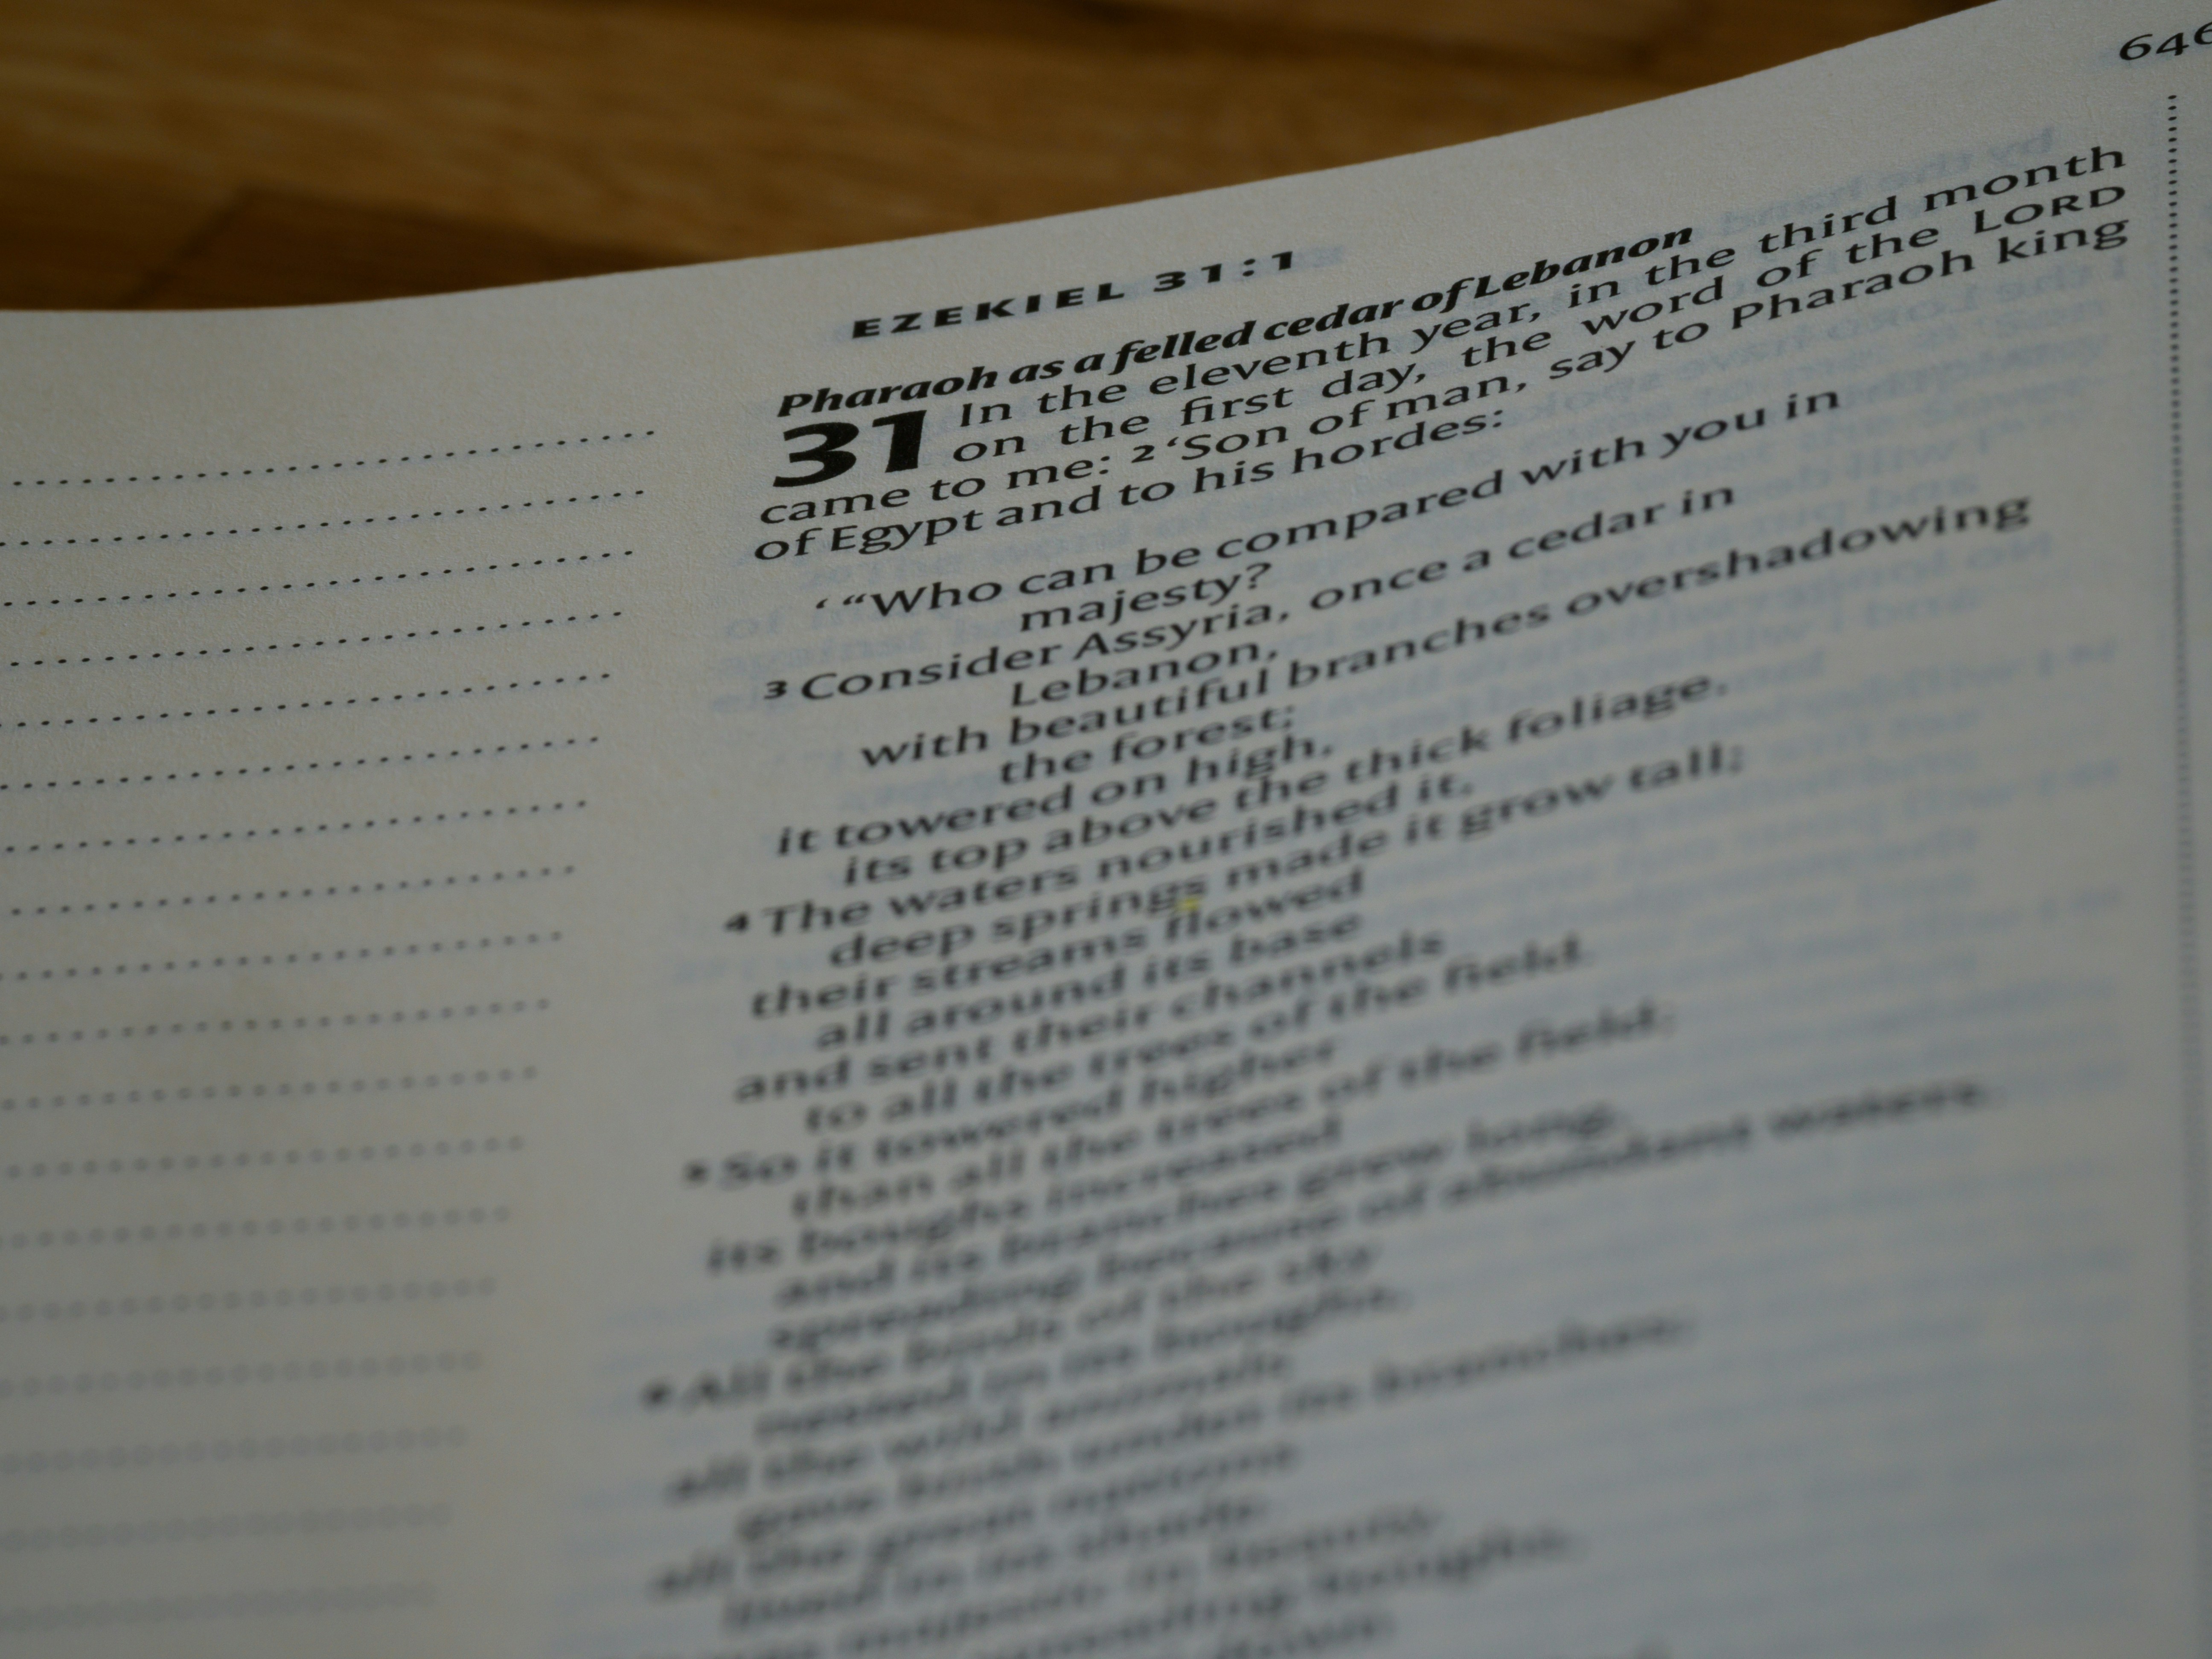 646
EZEKIEL 31:1
Pharaoh as a felled cedar of Lebanon
31 In the eleventh year, in the third month
on the first day, the word of the LORD
came to me: 2 ‘Son of man, say to Pharaoh king
of Egypt and to his hordes:
‘ “Who can be compared with you in
majesty?
3 Consider Assyria, once a cedar in
Lebanon,
with beautiful branches overshadowing
the forest;
it towered on high,
its top above the thick foliage.
4 The waters nourished it,
deep springs made it grow tall;
their streams flowed
all around its base
and sent their channels
to all the trees of the field.
5 So it towered higher
than all the trees of the field;
its boughs increased
and its branches grew long,
spreading because of abundant waters.
6 All the birds of the sky
nested in its boughs,
all the wild animals
gave birth under its branches;
all the great nations
lived in its shade.